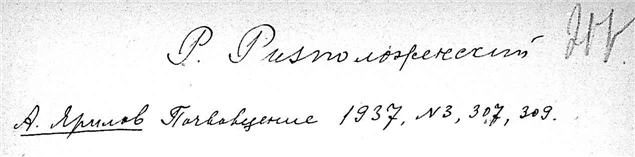 Р. Ризположенский
А. Ярилов Почвоведение 1937, N3, 307, 309.